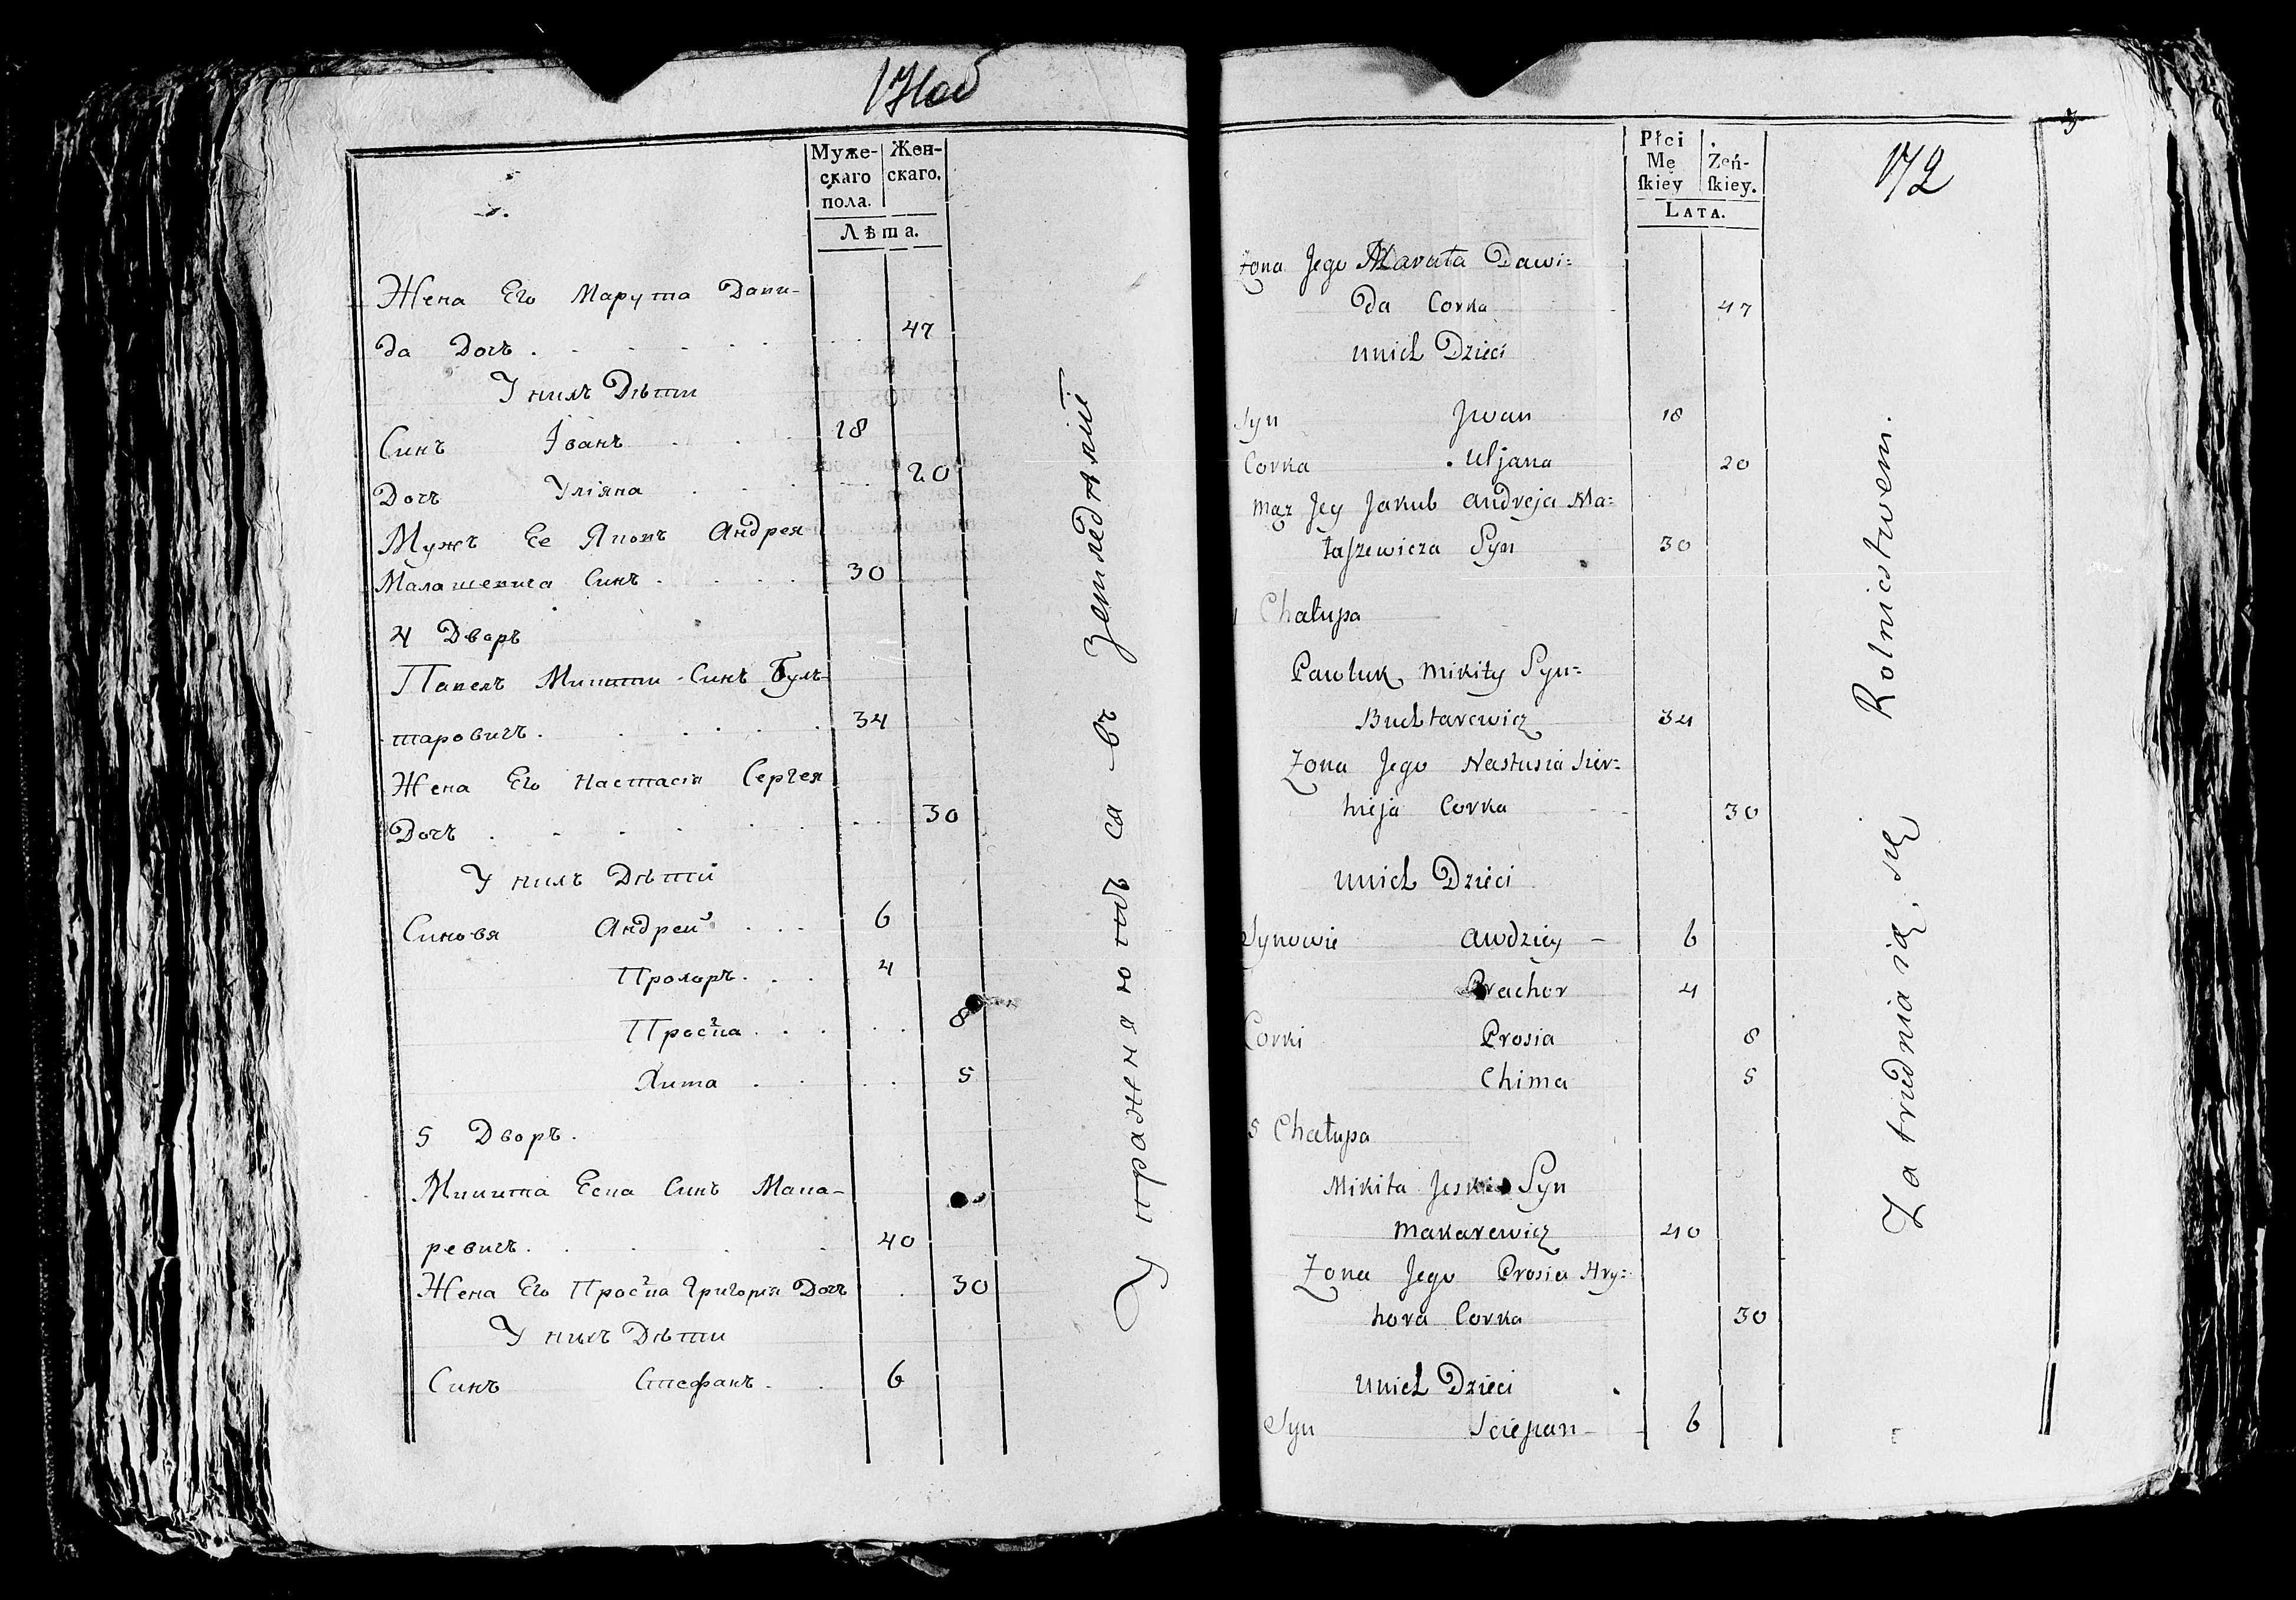 171об
Муже-
скаго
пола.
Жен-
скаго.
Лѣта.
Жена Его Марута Дави-
да Дочъ
47
У нихъ Дѣти
Синъ Іванъ 18
Дочъ Уліяна 20
Мужъ Ее Яковъ Андрея
Малашевича Синъ 30
4 Дворъ
Павелъ Микити Синъ Бухъ-
таровичъ. 34
Жена Его Настасія Сергея
Дочъ 30
У нихъ Дѣти
Синовя Андрей 6
Прохоръ. 4
8
Хима 5
5 Дворъ.
Микита Еска Синъ Мака-
ревичъ. 40
Жена Его Григорія Дочъ 30
У нихъ Дѣти
Синъ Стефанъ. 6
Упражняютъ са въ
172
Płci
Mę
skiey
Żeń-
skiey.
LATA.
Żona Jego Maruta Dawi=
da Corka 47
unich Dzieci
Syn Jwan 18
Corka Uljana 20
Mąz Jey Jakub Andreja Ma=
łaszewicza Syn 30
Chałupa
Pawluk Mikity Syn=
Buchtarewicz 34
Żona Jego Nastusia Sier=
hieja Corka 30
unich Dzieci
Synowie Awdziey 6
Prachor 4
Corki Prosia 8
Chima 5
5 Chałupa
Mikita Syn
Makarewicz 40
Żona Jego Prosia Hry=
hora Corka 30
unich Dzieci
Syn Sciepan 6
Zatrudniaią się Rolnictwem.